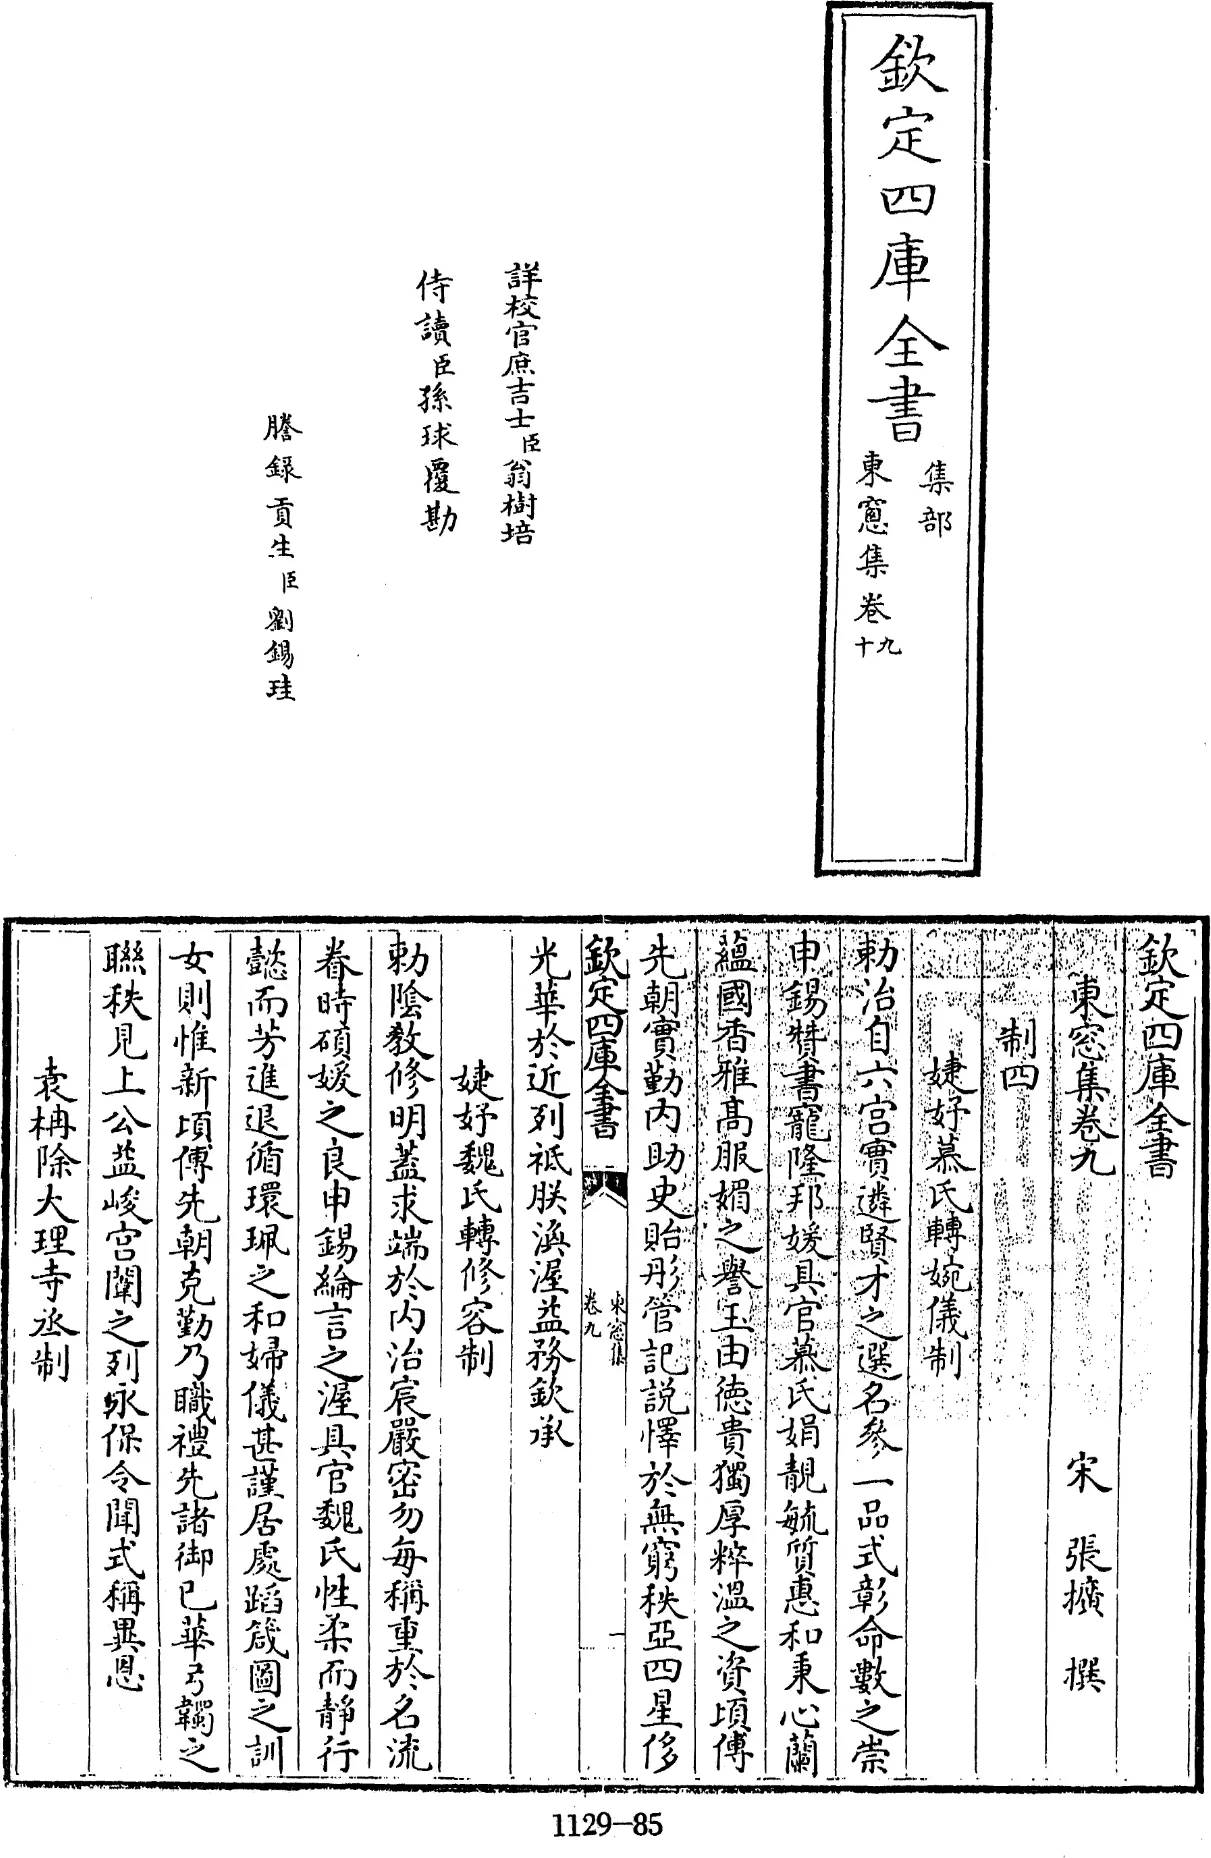 欽定四庫全書
集部
東窻集卷九
十
詳校官庶吉士臣翁樹培
侍讀臣孫球覆勘
謄錄貢生臣劉錫珪
欽定四庫全書
東窓集卷九
宋 張擴 撰
制四
婕妤慕氏轉婉儀制
勅治自六宫實遴賢才之選名參一品式彰命數之崇
申錫贊書寵隆邦媛具官慕氏娟靚毓質惠和秉心蘭
蘊國香雅髙服媚之譽玉由徳貴獨厚粹溫之資頃傅
先朝實勤内助史貽彤管記説懌於無窮秩亞四星侈
欽定四庫全書
東窓集
卷九
一
光華於近列祗朕渙渥益務欽承
婕妤魏氏轉修容制
勅陰敎修明蓋求端於内治宸嚴密勿每稱重於名流
眷時碩媛之良申錫綸言之渥具官魏氏性柔而靜行
懿而芳進退循環珮之和婦儀甚謹居處蹈箴圖之訓
女則惟新頃傅先朝克勤乃職禮先諸御已華弓韣之
聯秩見上公益峻宫闈之列永保令聞式稱異恩
袁柟除大理寺丞制
1129-85